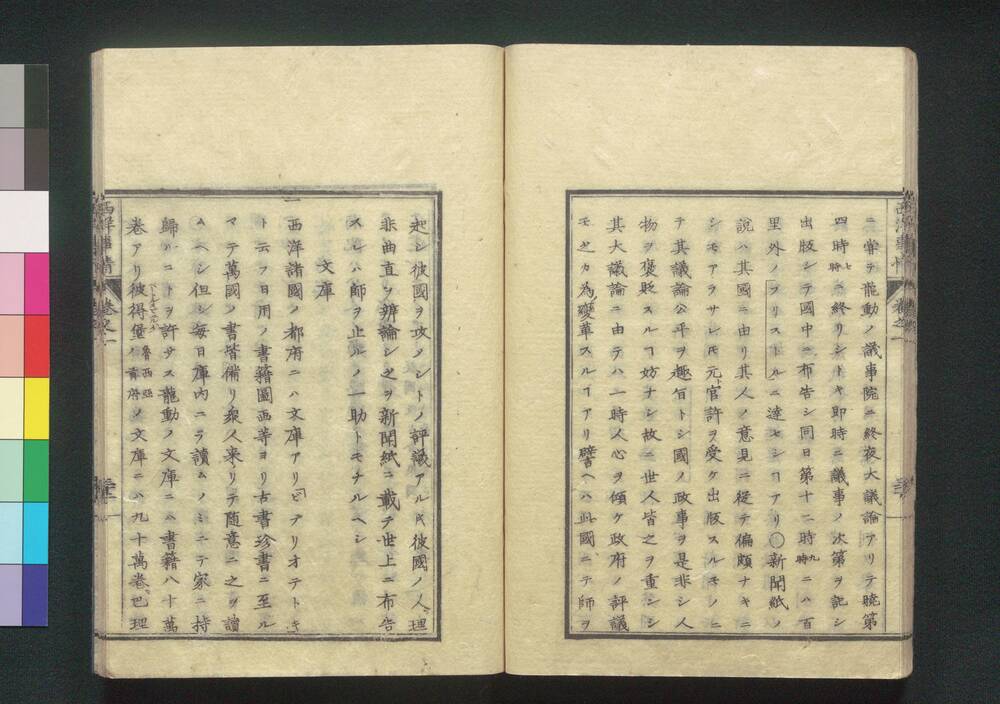 ニ嘗テ龍動ノ議事院ニ終夜大議論アリテ曉第
四時七時ニ終リシトキ即時ニ議事ノ次第ヲ記シ
出版シテ國中ニ布告シ同日第十二時九時ニハ百
里外ノブリストルニ達セシヿアリ〇新聞紙ノ
說ハ其國ニ由リ其人ノ意見ニ從テ偏頗ナキニ
シモアラサレ𪜈元ト官許ヲ受ケ出版スルモノニ
テ其議論公平ヲ趣旨トシ國ノ政事ヲ是非シ人
物ヲ褒貶スルヿ妨ナシ故ニ世人皆之ヲ重ンシ
其大議論ニ由テハ一時人心ヲ傾ケ政府ノ評議
モ之カ為メ變革スルヿアリ譬ヘハ此國ニテ師ヲ
起シ彼國ヲ攻ントノ評議アル𪜈彼國ノ人理
非曲直ヲ辨論シ之ヲ新聞紙ニ載テ世上ニ布告
スレハ師ヲ止ルノ一助トモナルヘシ
文庫
一西洋諸國ノ都府ニハ文庫アリビブリオテーキ
ト云フ日用ノ書籍圖畫等ヨリ古書珍書ニ至ル
マテ萬國ノ書皆備リ衆人來リテ隨意ニ之ヲ讀
ムヘシ但シ毎日庫内ニテ讀ムノミニテ家ニ持
歸ルヿヲ許サス龍動ノ文庫ニハ書籍八十萬
卷アリ彼得堡魯西亞ノ首府ノ文庫ニハ九十萬卷巴理
西洋事情
卷之一
西洋事情
卷之一